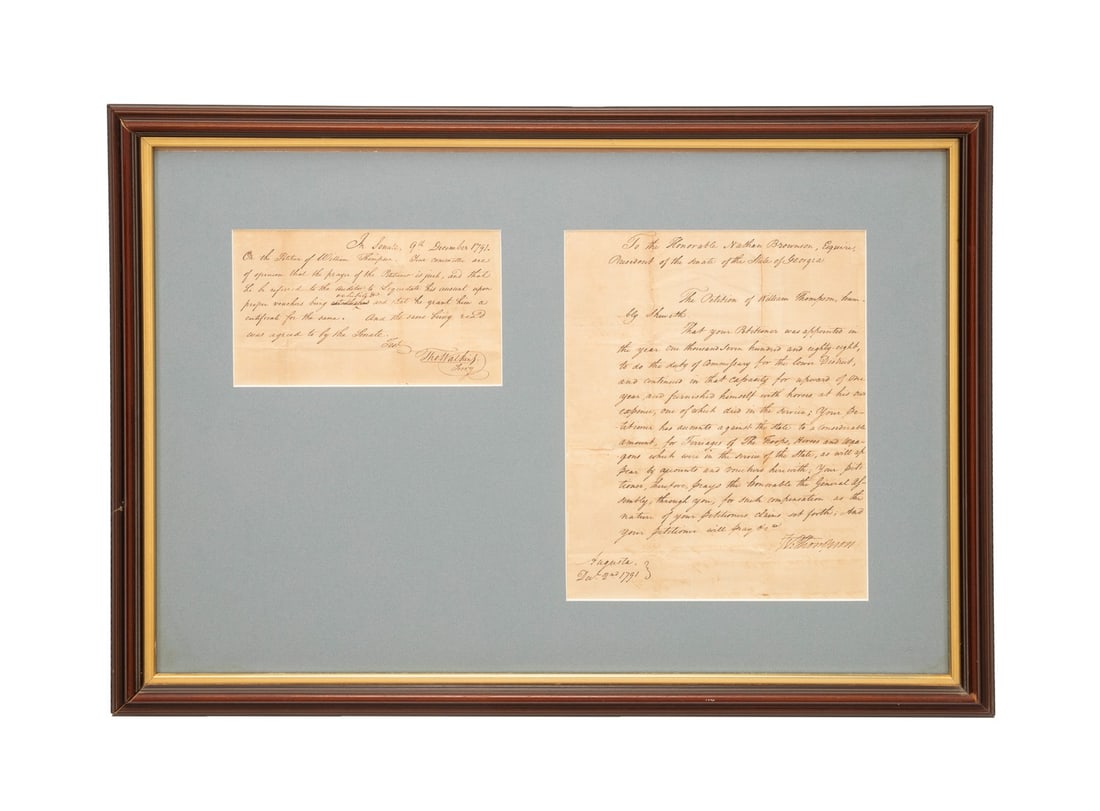 In Senate, 9th December 1791.
On the Petition of William Thompson. Your committee are
of opinion that the prayer of the Petitioner is just, and that
he be referred to the auditor to liquidate his account upon
proper vouchers being and that he grant him a
certificate for the same. And the same being read
was agreed to by the Senate.
Thos Watkins.
Secy
To the Honorable Nathan Brownson, Esquire,
President of the senate of the State of Georgia
The Petition of William Thompson, hum-
bly Sheweth.
That your Petitioner was appointed in
the year one thousand seven hundred and eighty-eight,
to do the duty of Commissary for the lower District,
and continued in that capacity for upward of one
year, and furnished himself with horses at his own
expence, one of which died in the service; Your Pe-
titioner has accounts against the state to a considerable
amount, for Ferriages of The Troops, Horses and wag-
gons which were in the service of the State, as will ap
pear by accounts and vouchers herewith, Your peti-
tioner, therefore, prays the honorable the General As-
sembly, through you, for such compensation as the
nature of your petitioners claims set forth; And
your petitioner will pray &ca
Wm Thompson
Augusta.
Decr 2nd 1791